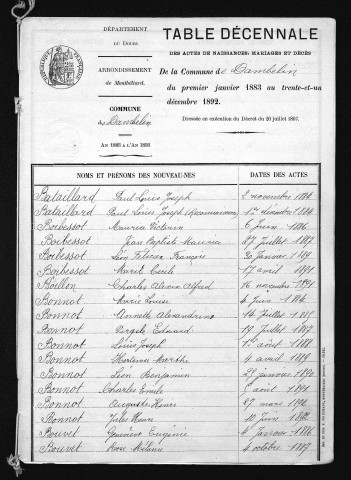 DÉPARTEMENT
DU DOUBS
ARRONDISSEMENT
de Montbéliard.
COMMUNE
de Dambelin
AN 1883 A L'AN 1893
TABLE DÉCENNALE
DES ACTES DE NAISSANCES, MARIAGES ET DÉCÈS
De la Commune de Dambelin
du premier janvier 1883 au trente-et-un
décembre 1892.
Dressée en exécution du Décret du 20 juillet 1807.
NOMS ET PRÉNOMS DES NOUVEAU-NÉS DATES DES ACTES
Bataillard Paul Louis Joseph 2 novembre 1884
Bataillard Paul Louis Joseph (Reconnaissance) 1er décembre 1884
Boibessot Maurice Victorin 6 Juin 1886
Boibessot Jean Baptiste Maurice 27 Juillet 1887
Boibessot Léon François 20 Janvier 1889
Boibessot Marie Cécile 17 avril 1891
Boillon Charles Alfred 16 novembre 1891
Bonnot Marie Louise 4 Juin 1884
Bonnot Annette Alexandrine 14 Juillet 1885
Bonnot Edouard 19 Juillet 1887
Bonnot Louis Joseph 1er août 1888
Bonnot Hortense Marthe 4 avril 1889
Bonnot Léon Benjamin 21 janvier 1890
Bonnot Charles Emile août 1891
Bonnot Auguste Henri 27 mars 1892
Bonnot Jules Henri 10 Juin 1892
Bouvet Geneviève Eugénie Janvier 1886
Bouvet Rose Mélanie 4 octobre 1887